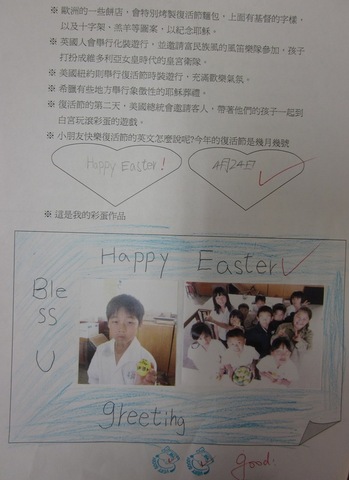 ※ 歐洲的一些餅店，會特別烤製復活節麵包，上面有基督的字樣，
以及十字架、羔羊等圖案，以紀念耶穌。
※ 英國人會舉行化裝遊行，並邀請富民族風的風笛樂隊參加。孩子
打扮成維多利亞女皇時代的皇宮衛隊。
※ 美國紐約則舉行復活節時裝遊行，充滿歡樂氣氛。
※ 希臘有些地方舉行象徵性的耶穌葬禮。
※ 復活節的第二天，美國總統會邀請客人，帶著他們的孩子一起到
白宮玩滾彩蛋的遊戲。
※ 小朋友快樂復活節的英文怎麼說呢?今年的復活節是幾月幾號
Happy Easter!
4月24日
※ 這是我的彩蛋作品
Happy Easter
Ble
ss
U
greeting
good.